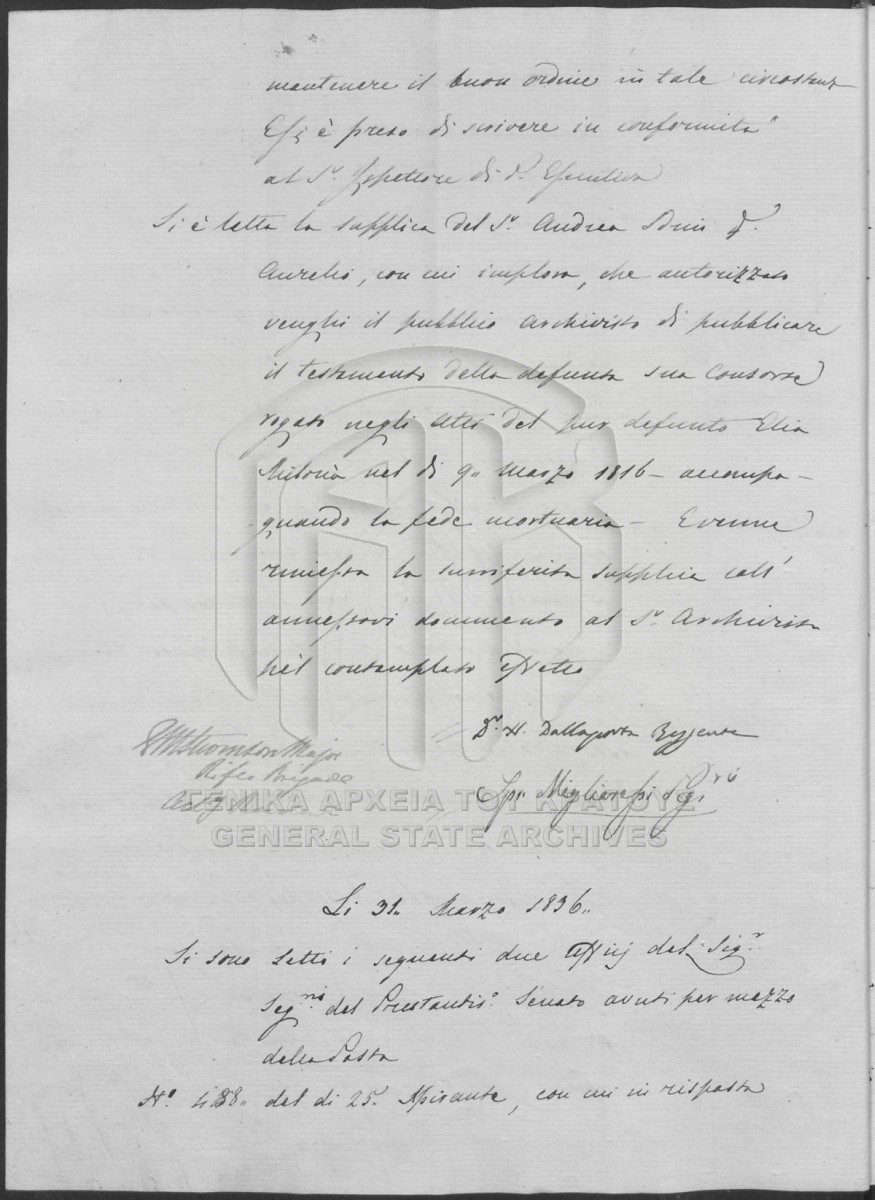 mantenere il buon ordine in tale circostanz
Essi è preso di scrivere in conformità
al Sr. Ispettore di Pa. Esecutiva
Si è letta la supplica del Sr. Andrea
Aurelio, con cui implora, che autorizzato
venghi il pubblico archivista di pubblicare
il testamento della defunta sua Consorte
rogato negli atti del pur defunto Elia
nel di 9.. Marzo 1816 – accompa–
gnando la fede mortuaria – E venne
rimessa la surriferita supplica coll'
annessovi documento al Sr. Archivista
pel contemplato effetto
Dr. N. Dallaporta Reggente
Spn. Migliaressi Segrio
Thomson Major
Rifle Brigade
ΓΕΝΙΚΑ ΑΡΧΕΙΑ ΤΟΥ ΚΡΑΤΟΥΣ
GENERAL STATE ARCHIVES
Li 31.. Marzo 1836..
Si sono letti i seguenti due Officj del Sigr.
Segrio. del Prestantiso. Senato avuti per mezzo
della Posta
No. 488.. del di 25.. spirante, con cui in risposta